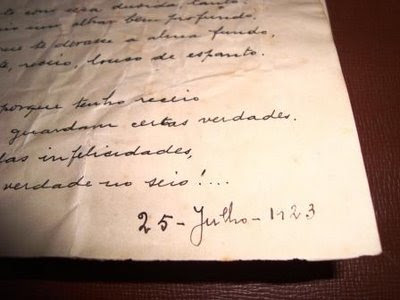 com essa duvida, tanto.
um olhar bem profundo,
te devasse a alma fundo,
receio, louco de espanto.
porque tenho receio
guardam certas verdades.
infelicidades,
verdade no seio!....
25 - Julho - 1923